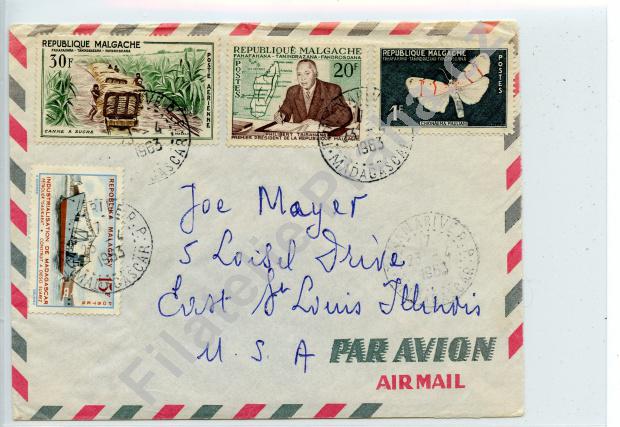 REPUBLIQUE MALGACHE
FAHAFAHANA - TANINDRAZANA - FANDROSOANA
30F
POSTE AERIENNE
CANNE A SUCRE
REPUBLIQUE MALGACHE
FAHAFAHANA - TANINDRAZANA - FANDROSOANA
POSTES
20F
PREMIER PRÉSIDENT DE LA REPUBLIQUE
REPUBLIQUE MALGACHE
FAHAFAHANA - TANINDRAZANA - FANDROSOANA
1F
POSTES
1963
MADAGASCAR
1963
MADAGASCAR
REPOBLIKA MALAGASY
INDUSTRIALISATION DE MADAGASCAR
15F
POSTES
MADAGASCAR
1963
Joe Mayer
5 Loisel Drive
East St Louis Illinois
U. S. A
PAR AVION
AIR MAIL
Filatelie